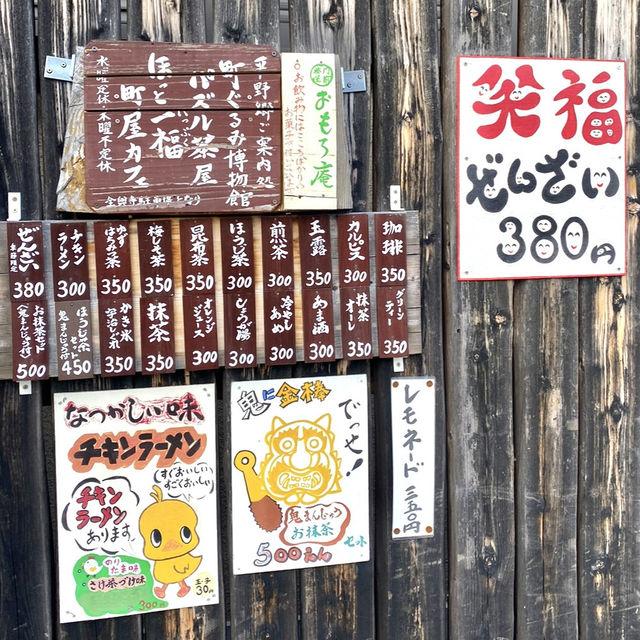 平野郷ご案内処
町ぐるみ博物館
パズル茶屋
ほっと一福
いっぷく
町屋カフェ
水曜定休 木曜不定休
全興寺駐車場となり
おもろ庵
お飲み物には
お菓子
笑福
ぜんざい
380円
珈琲 350
カルピス 350
玉露 350
煎茶 300
ほうじ茶 300
昆布茶 350
梅じそ茶 350
ゆずはちみつ茶 350
チキンラーメン 300
ぜんざい 380
グリーンティー 350
抹茶オーレ 350
あま酒 300
冷やしあめ 300
しょうが湯 300
オレンジジュース 300
抹茶 350
かき氷 宇治しぐれ 350
ほうじ茶セット 鬼まんじゅう付 450
お抹茶セット (鬼まんじゅう付) 500
なつかしい味
チキンラーメン
すぐおいしい
すごくおいしい
チキン
ラーメン
あります
のりたま味
さけ茶づけ味
300
玉子
30円
鬼に金棒
でっせ!
鬼まんじゅう
お抹茶
セット
500えん
レモネード 三五〇円